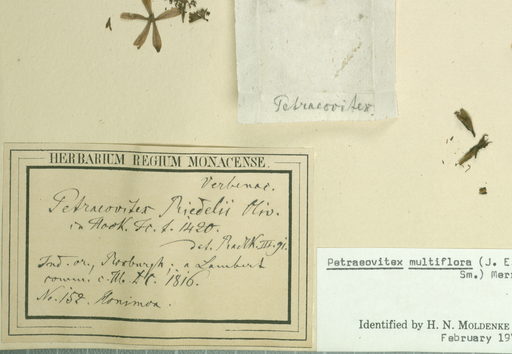 Petraeovitex.
HERBARIUM REGIUM MONACENSE.
Verbenac.
Petraeovitex Riedelii Oliv.
in Hook. Ic. t. 1420.
det. Radlk. III. 91.
Ind. or., Roxburgh. a Lambert
comm. c. 1816.
No. 152. Honimoa.
Petraeovitex multiflora (J. E.
Sm.) Merr
Identified by H. N. MOLDENKE
February 197